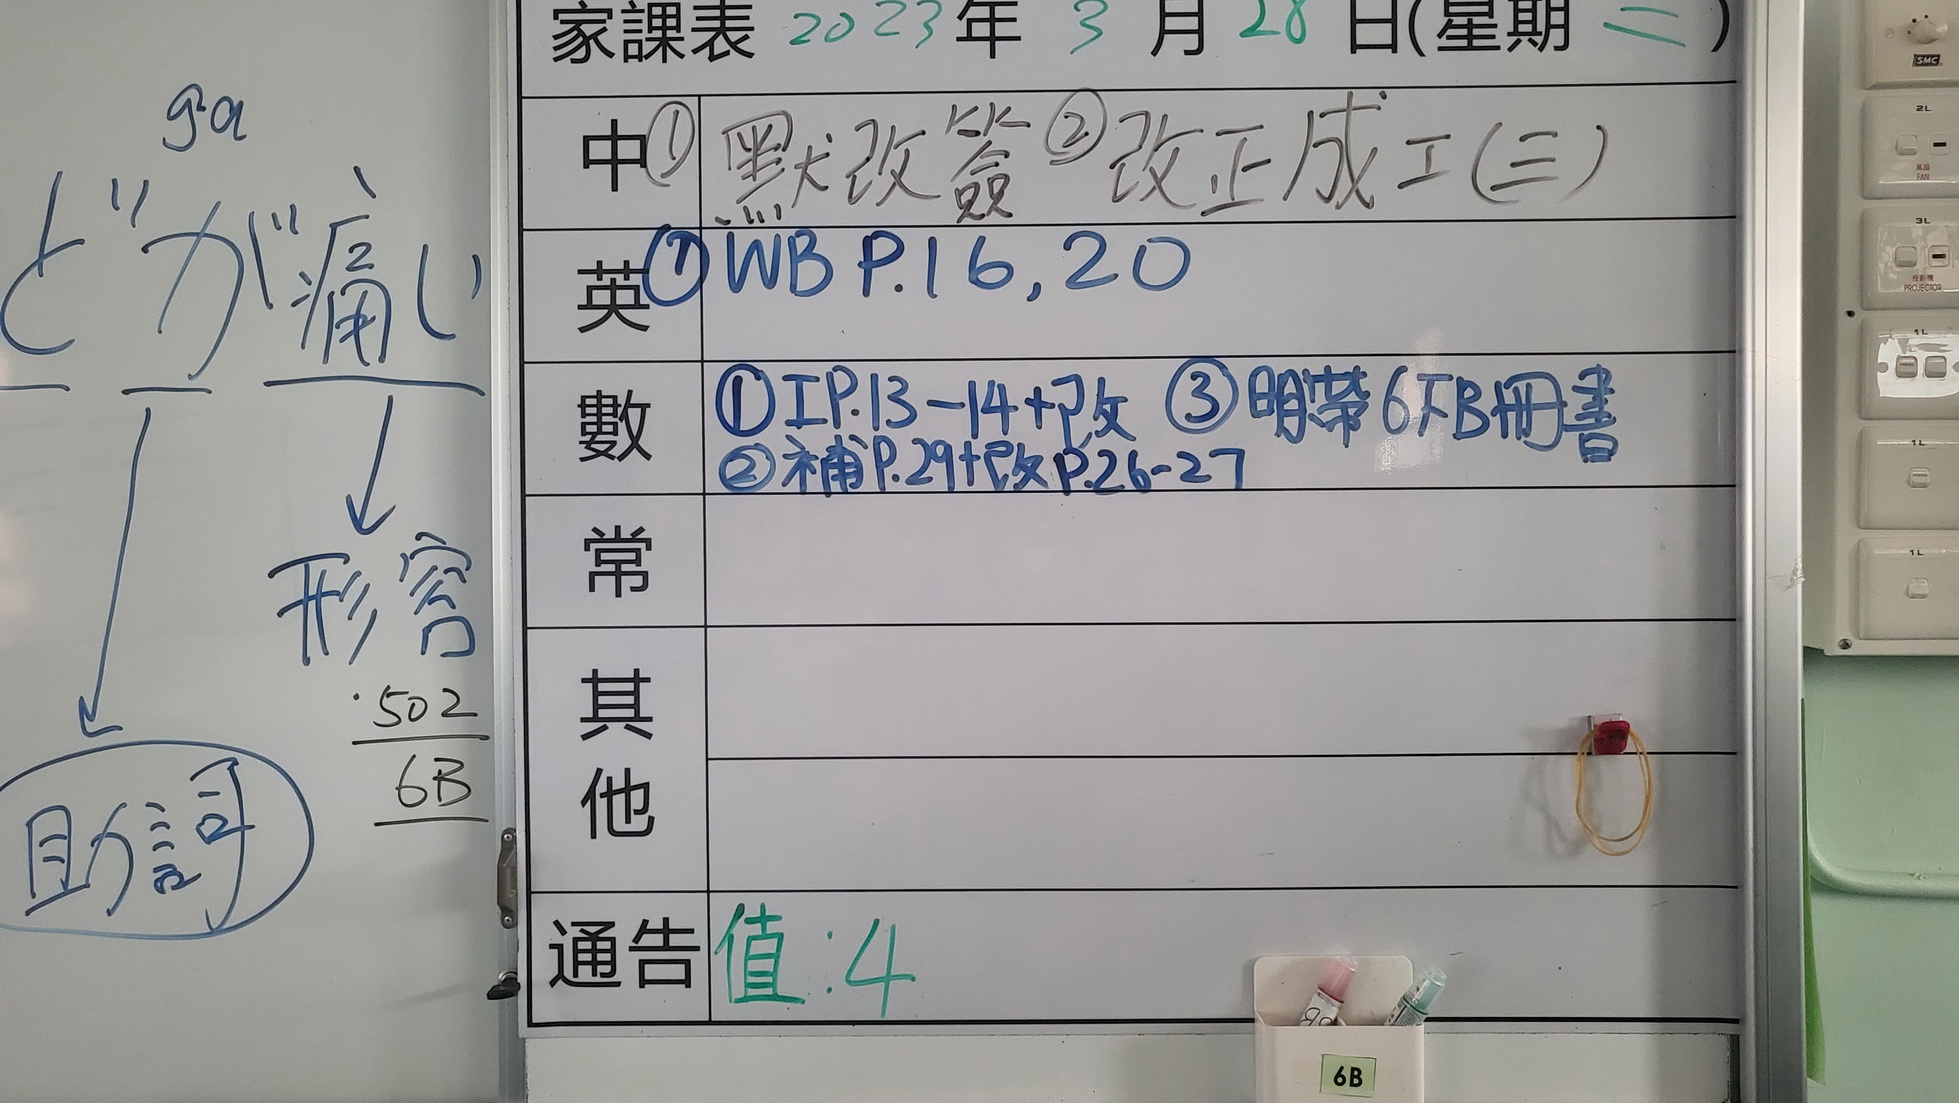 ga
どが痛い
形容
助詞
502
6B
家課表 2023年 3月 28日(星期二)
中 ①默改簽 ②改正成工(三)
英 ①WB P.16,20
數 ①工P.13-14+改 ③明帶6下B冊書
②補P.29+改P.26-27
常
其他
通告 值:4
6B
SMC
2L
風扇
FAN
3L
投影機
PROJECTOR
1L
1L
1L